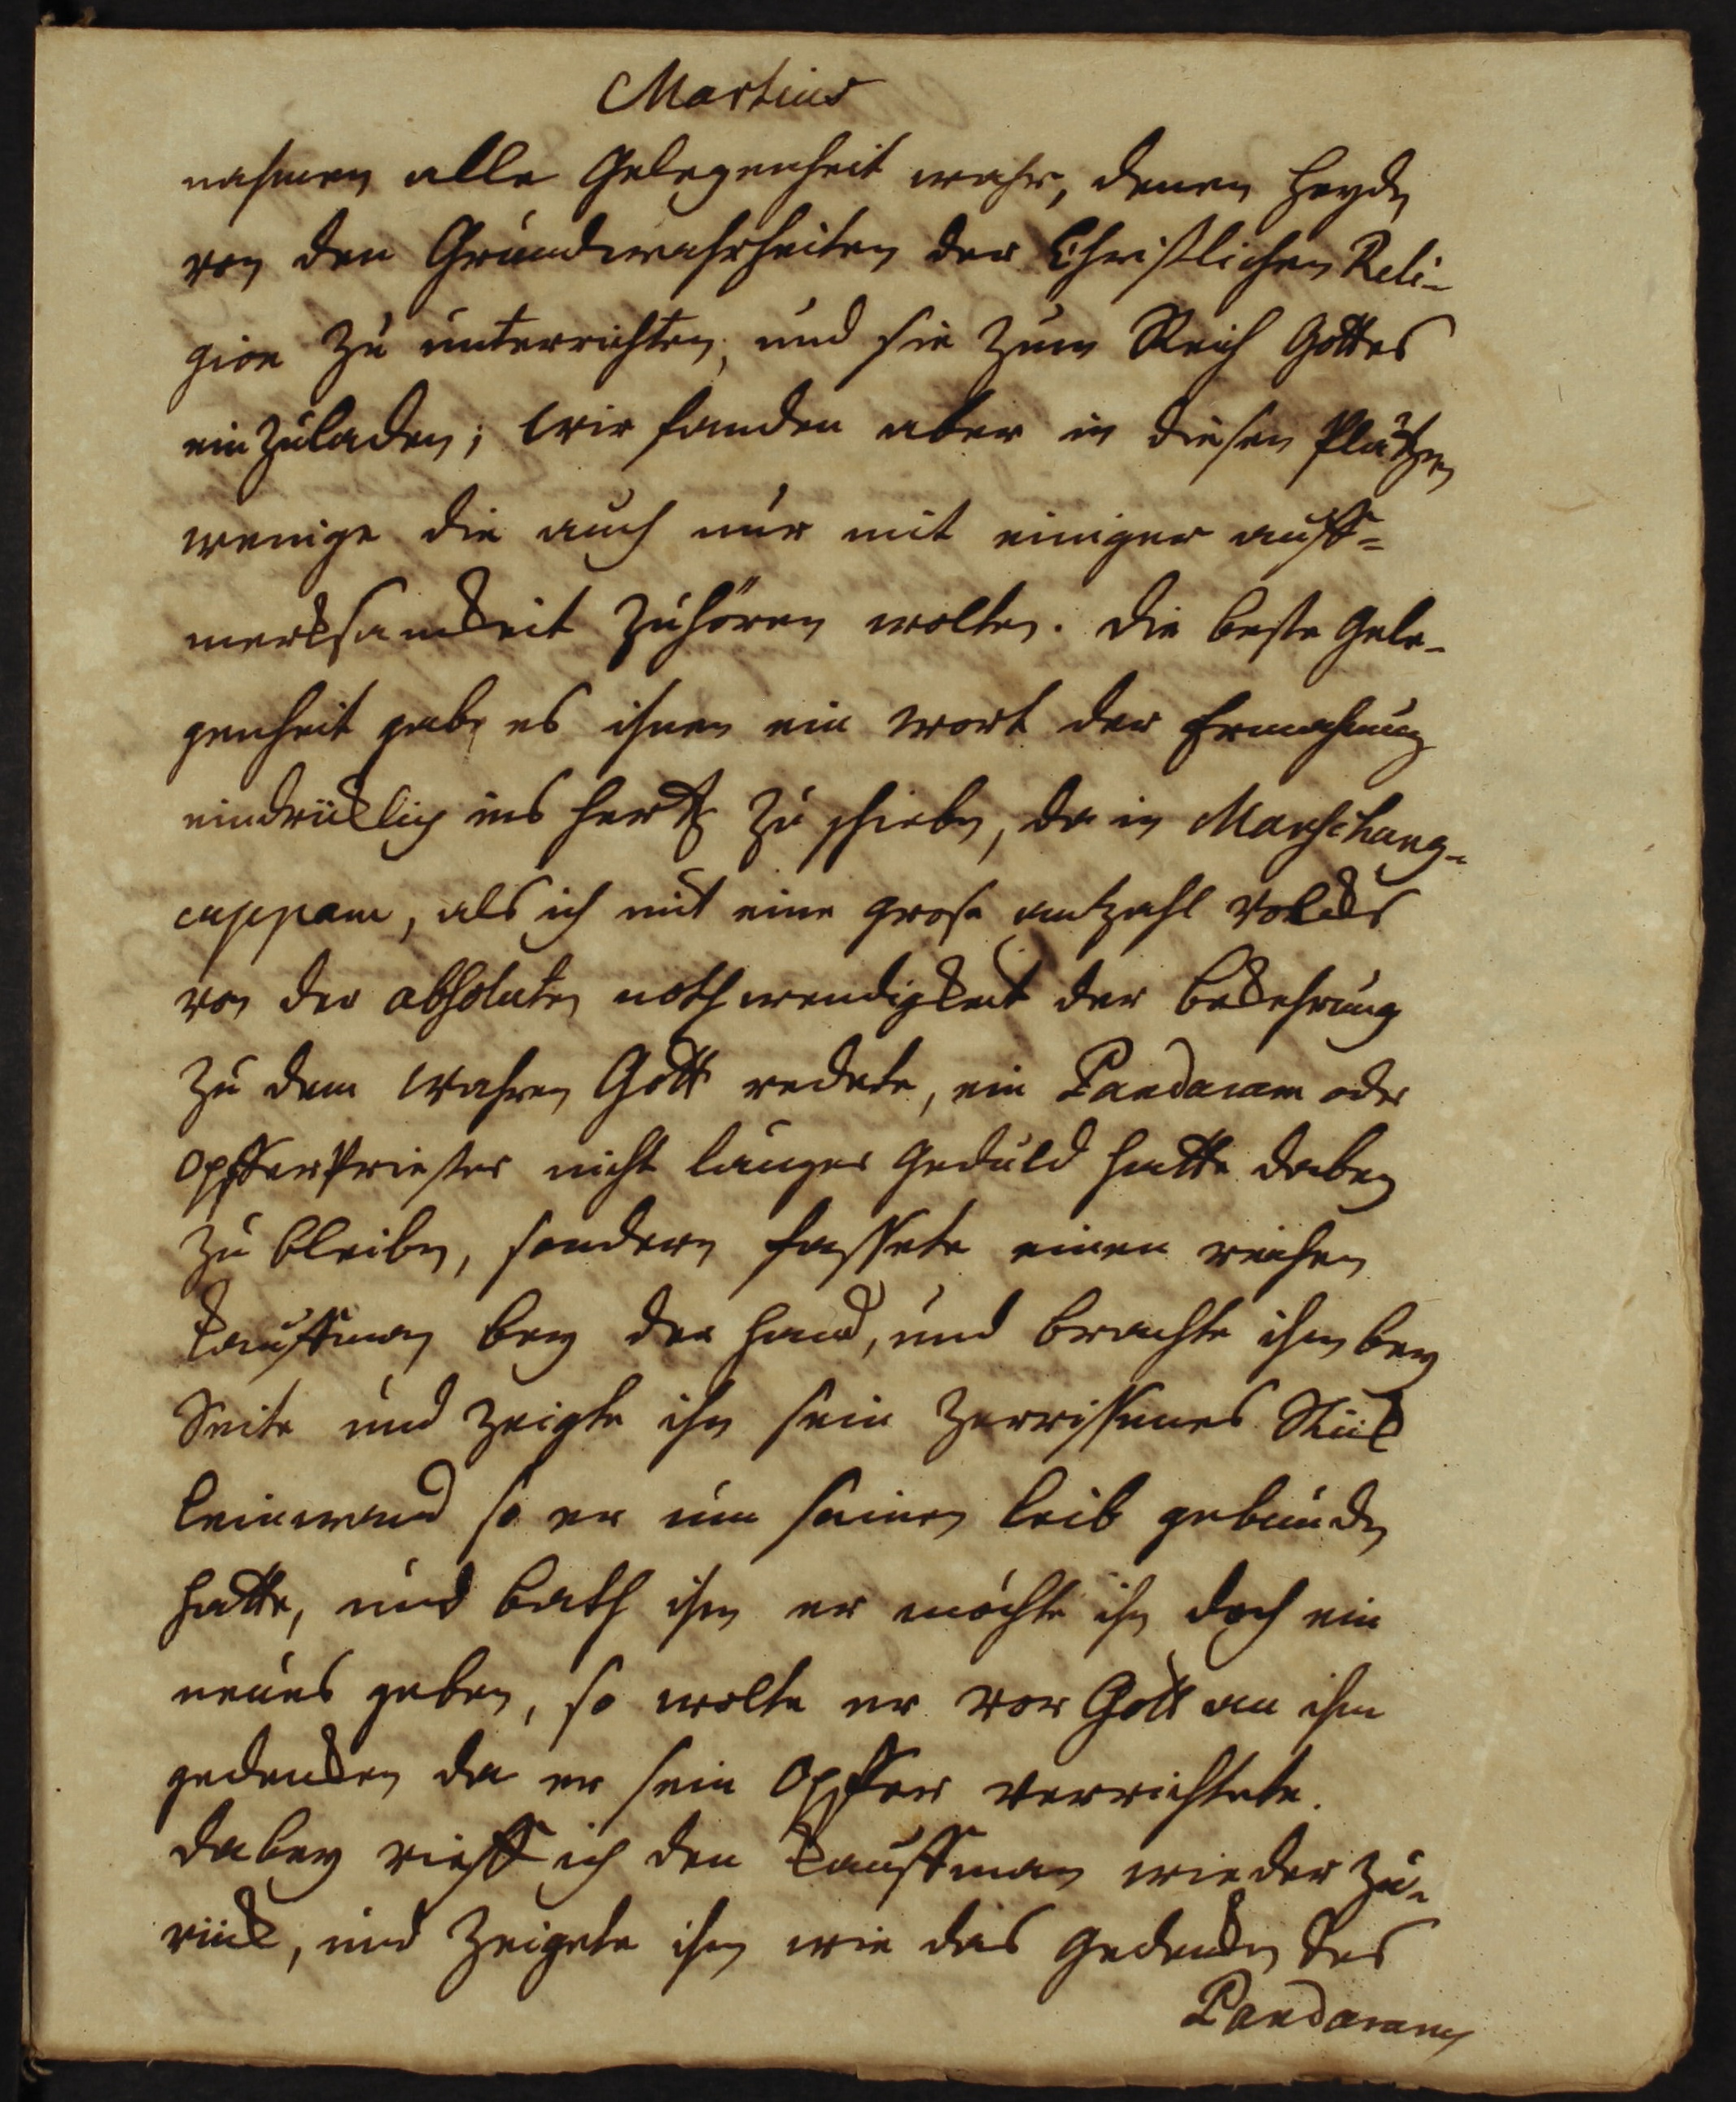 Martius
nahmen alle Gelegenheit wahr, denen Heyden
von den Grundwahrheiten der Christlichen Reli-
gion zu unterrichten, und sie zum Reich Gottes
einzuladen; wir fanden aber in diesen Plätzen
wenige die auch nur mit einiger auff=
merksamkeit zuhören wolten. die beste Gele-
genheit gabe es ihnen ein wort der Ermahnung
eindrüklich ins hertz zu schieben, da in Manschang-
cuppam, als ich mit eine grose antzahl volcks
von der absoluten nothwendigkeit der bekehrung
zu dem wahren Gott redete, ein Pandaram oder
opfferpriester nicht länger geduld hatte dabey
zu bleiben, sondern fassete einen reichen
Kauffman bey der hand, und brachte ihn bey
Seite und zeigte ihn sein zerrissenes Stük
leinwand so er um seinen leib gebunden
hatte, und bath ihn er möchte ihn doch ein
neues geben, so wolte er vor Gott an ihn
gedencken da er sein opffer verrichtete.
dabey rieff ich den Kauffman wieder zu-
rük, und zeigete ihn wie das gedencken des
Pandarams